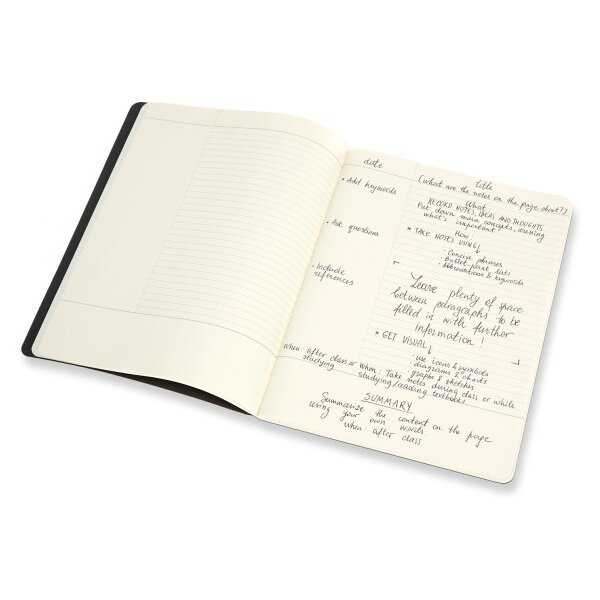 date
• Add keywords
• Ask questions
• Include
references
when: after class or
studying
title
[what are the notes on the page about?]
What
RECORD NOTES, IDEAS AND THOUGHTS
Put down main concepts, stressing
what's important
How:
* TAKE NOTES USING↓
• Concise phrases
• Bullet point lists
• Abbreviations & keywords
Leave plenty of space
between paragraphs to be
filled in with further
information!
* GET VISUAL↓
• use icons & symbols
• diagrams & charts
• graphs & sketches
When: Take notes during class or while
studying/reading textbooks
SUMMARY
Summarize the content on the page
using your own words.
when: after class